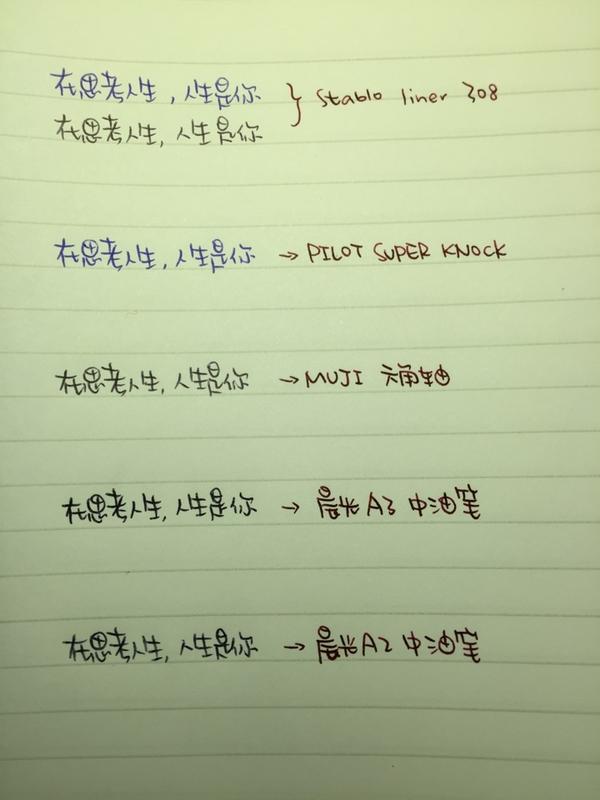 在思考人生，人生是你 } Stablo liner 308
在思考人生，人生是你
在思考人生，人生是你 → PILOT SUPER KNOCK
在思考人生，人生是你 → MUJI 六角轴
在思考人生，人生是你 → 晨光 A3 中油笔
在思考人生，人生是你 → 晨光 A2 中油笔